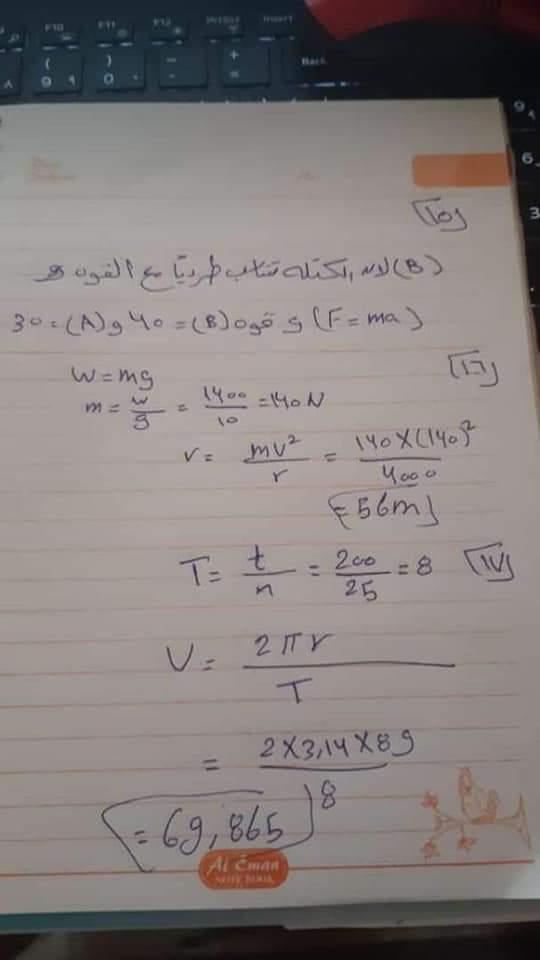 F10 F11 F12 PrtScr Insert
Back
[١٥]
(B) لانه الكتله تتناسب طرديًا مع القوه
(F=ma) و قوه (B) = ٤٠ و (A) = 30
[١٦]
W=mg
m = w/g = 1400/10 = 140 N
r = mv²/r = 140×(140)²/4000
= 56m
[١٧]
T= t/n = 200/25 = 8
V= 2πr/T
= 2×3,14×89/8
= 69,865
Al Eman
NOTE BOOK